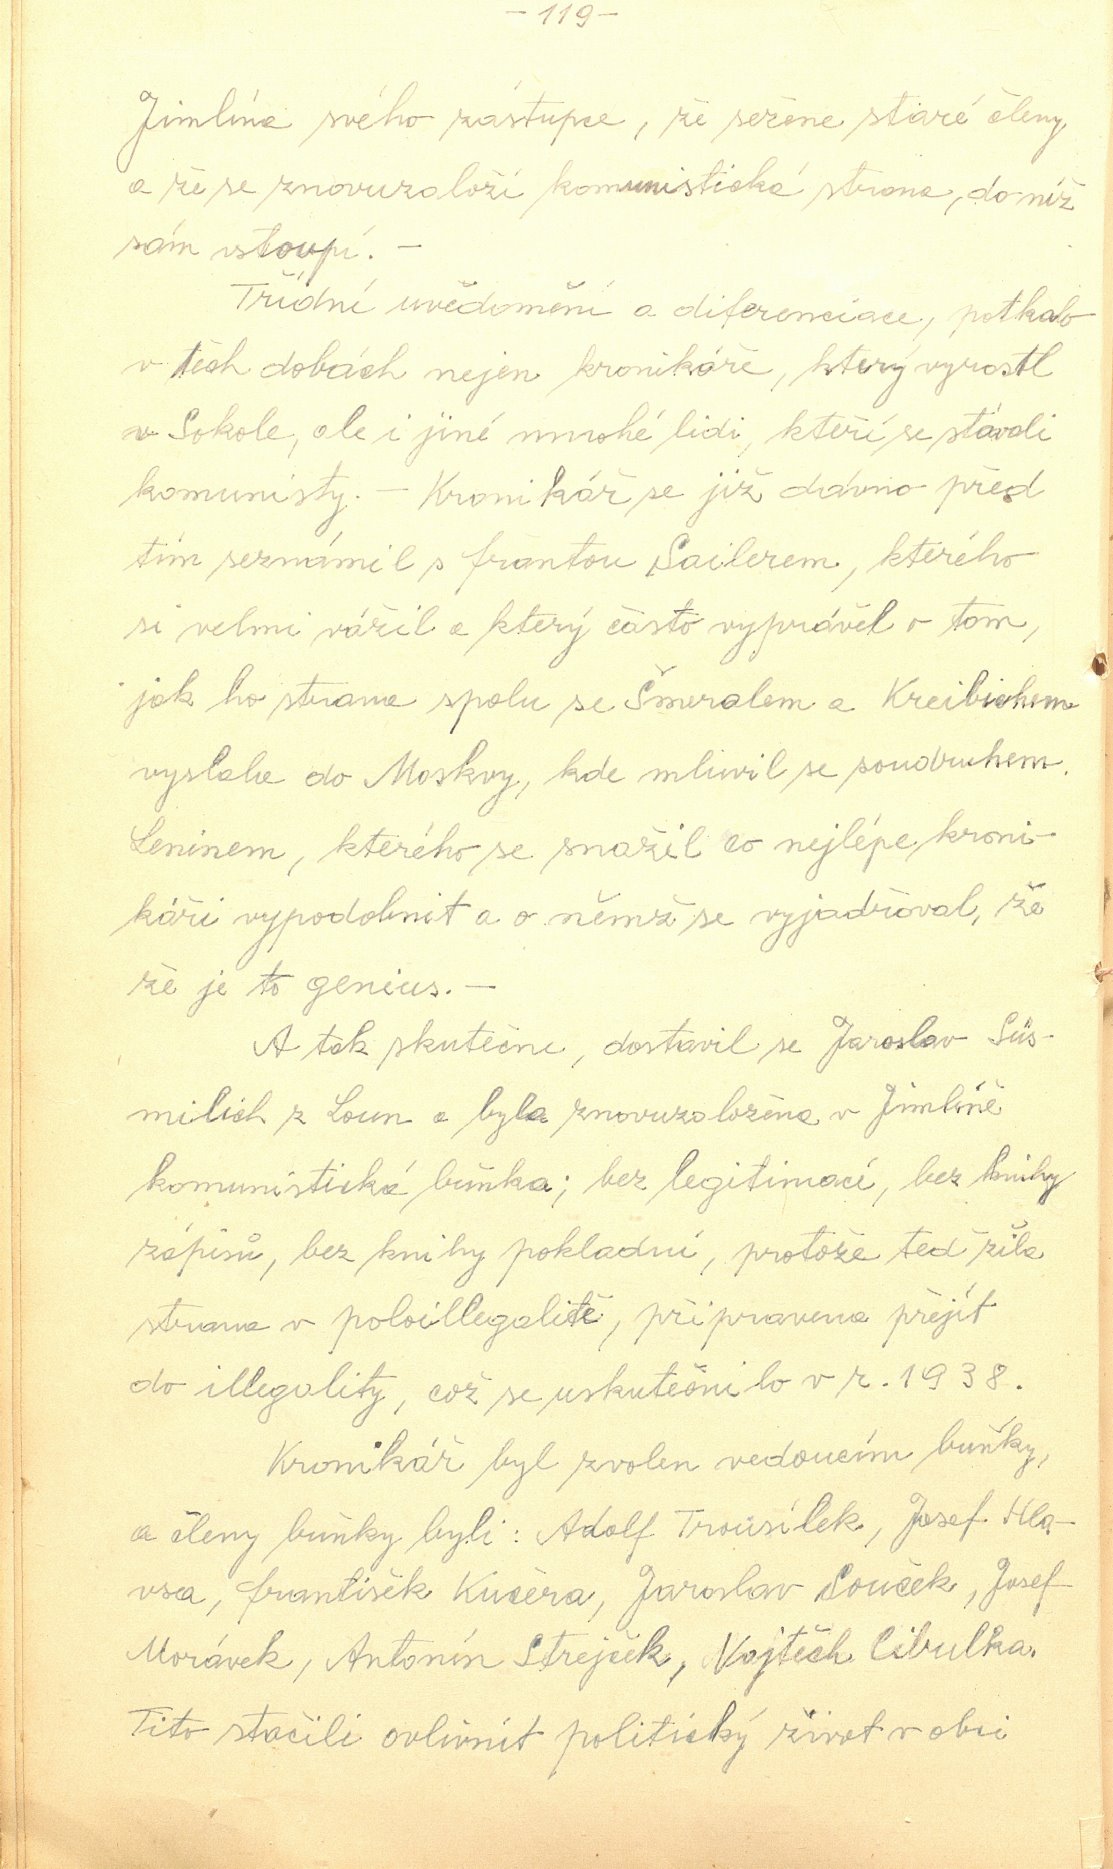 - 119 -
Jimlína svého zástupce, že sežene staré členy
a že se znovuzaloží komunistická strana, do níž
sám vstoupí. -
Třídní uvědomění a diferenciace, potkalo
v těch dobách nejen kronikáře, který vyrostl
v Sokole, ale i jiné mnohé lidi, kteří se stávali
komunisty. - Kronikář se již dávno před
tím seznámil s frantou Sailerem, kterého
si velmi vážil a který často vyprávěl o tom,
jak ho strana spolu se Šmeralem a Kreibichem
vyslala do Moskvy, kde mluvil se soudruhem
Leninem, kterého se snažil co nejlépe kroni-
káři vypodobnit a o němž se vyjadřoval, že
že je to genius. -
A tak skutečne, dostavil se Jaroslav Süs-
milich z Loun a byla znovuzaložena v Jimlíně
komunistická buňka; bez legitimací, bez knihy
zápisů, bez knihy pokladní, protože teď žila
strana v poloillegalitě, připravena přejít
do illegality, což se uskutečnilo v r. 1938.
Kronikář byl zvolen vedoucím buňky,
a členy buňky byli: Adolf Trousílek, Josef Hla-
vsa, františek Kučera, Jaroslav Souček, Josef
Morávek, Antonín Strejček, Vojtěch Cibulka.
Tito stačili ovlivnit politický život v obci